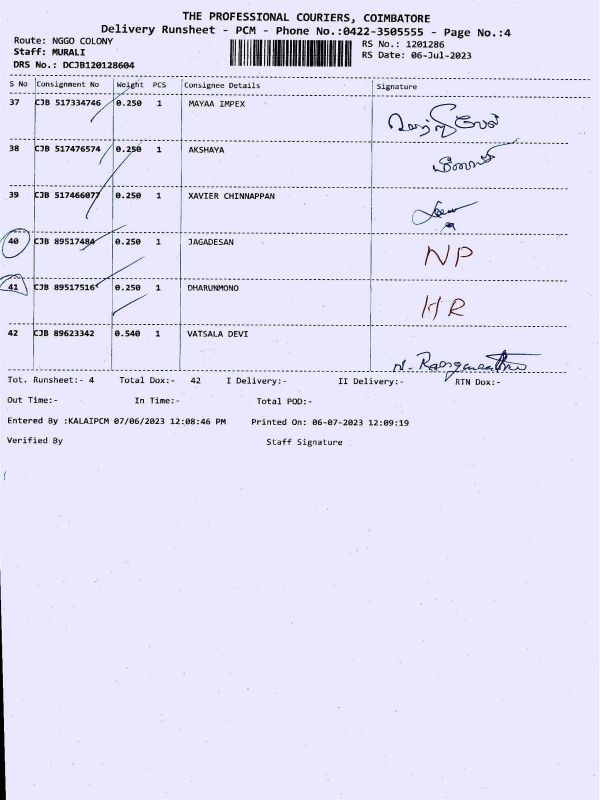 THE PROFESSIONAL COURIERS, COIMBATORE
Delivery Runsheet - PCM - Phone No.:0422-3505555 - Page No.:4
Route: NGGO COLONY
RS No.: 1201286
Staff: MURALI
RS Date: 06-Jul-2023
DRS No.: DCJB120128604
S No Consignment No Weight PCS Consignee Details Signature
37 CJB 517334746 0.250 1 MAYAA IMPEX
38 CJB 517476574 0.250 1 AKSHAYA
39 CJB 517466077 0.250 1 XAVIER CHINNAPPAN
40 CJB 89517484 0.250 1 JAGADESAN NP
41 CJB 89517516 0.250 1 DHARUNMONO HR
42 CJB 89623342 0.540 1 VATSALA DEVI
Tot. Runsheet:- 4 Total Dox:- 42 I Delivery:- II Delivery:- RTN Dox:-
Out Time:- In Time:- Total POD:-
Entered By :KALAIPCM 07/06/2023 12:08:46 PM Printed On: 06-07-2023 12:09:19
Verified By Staff Signature